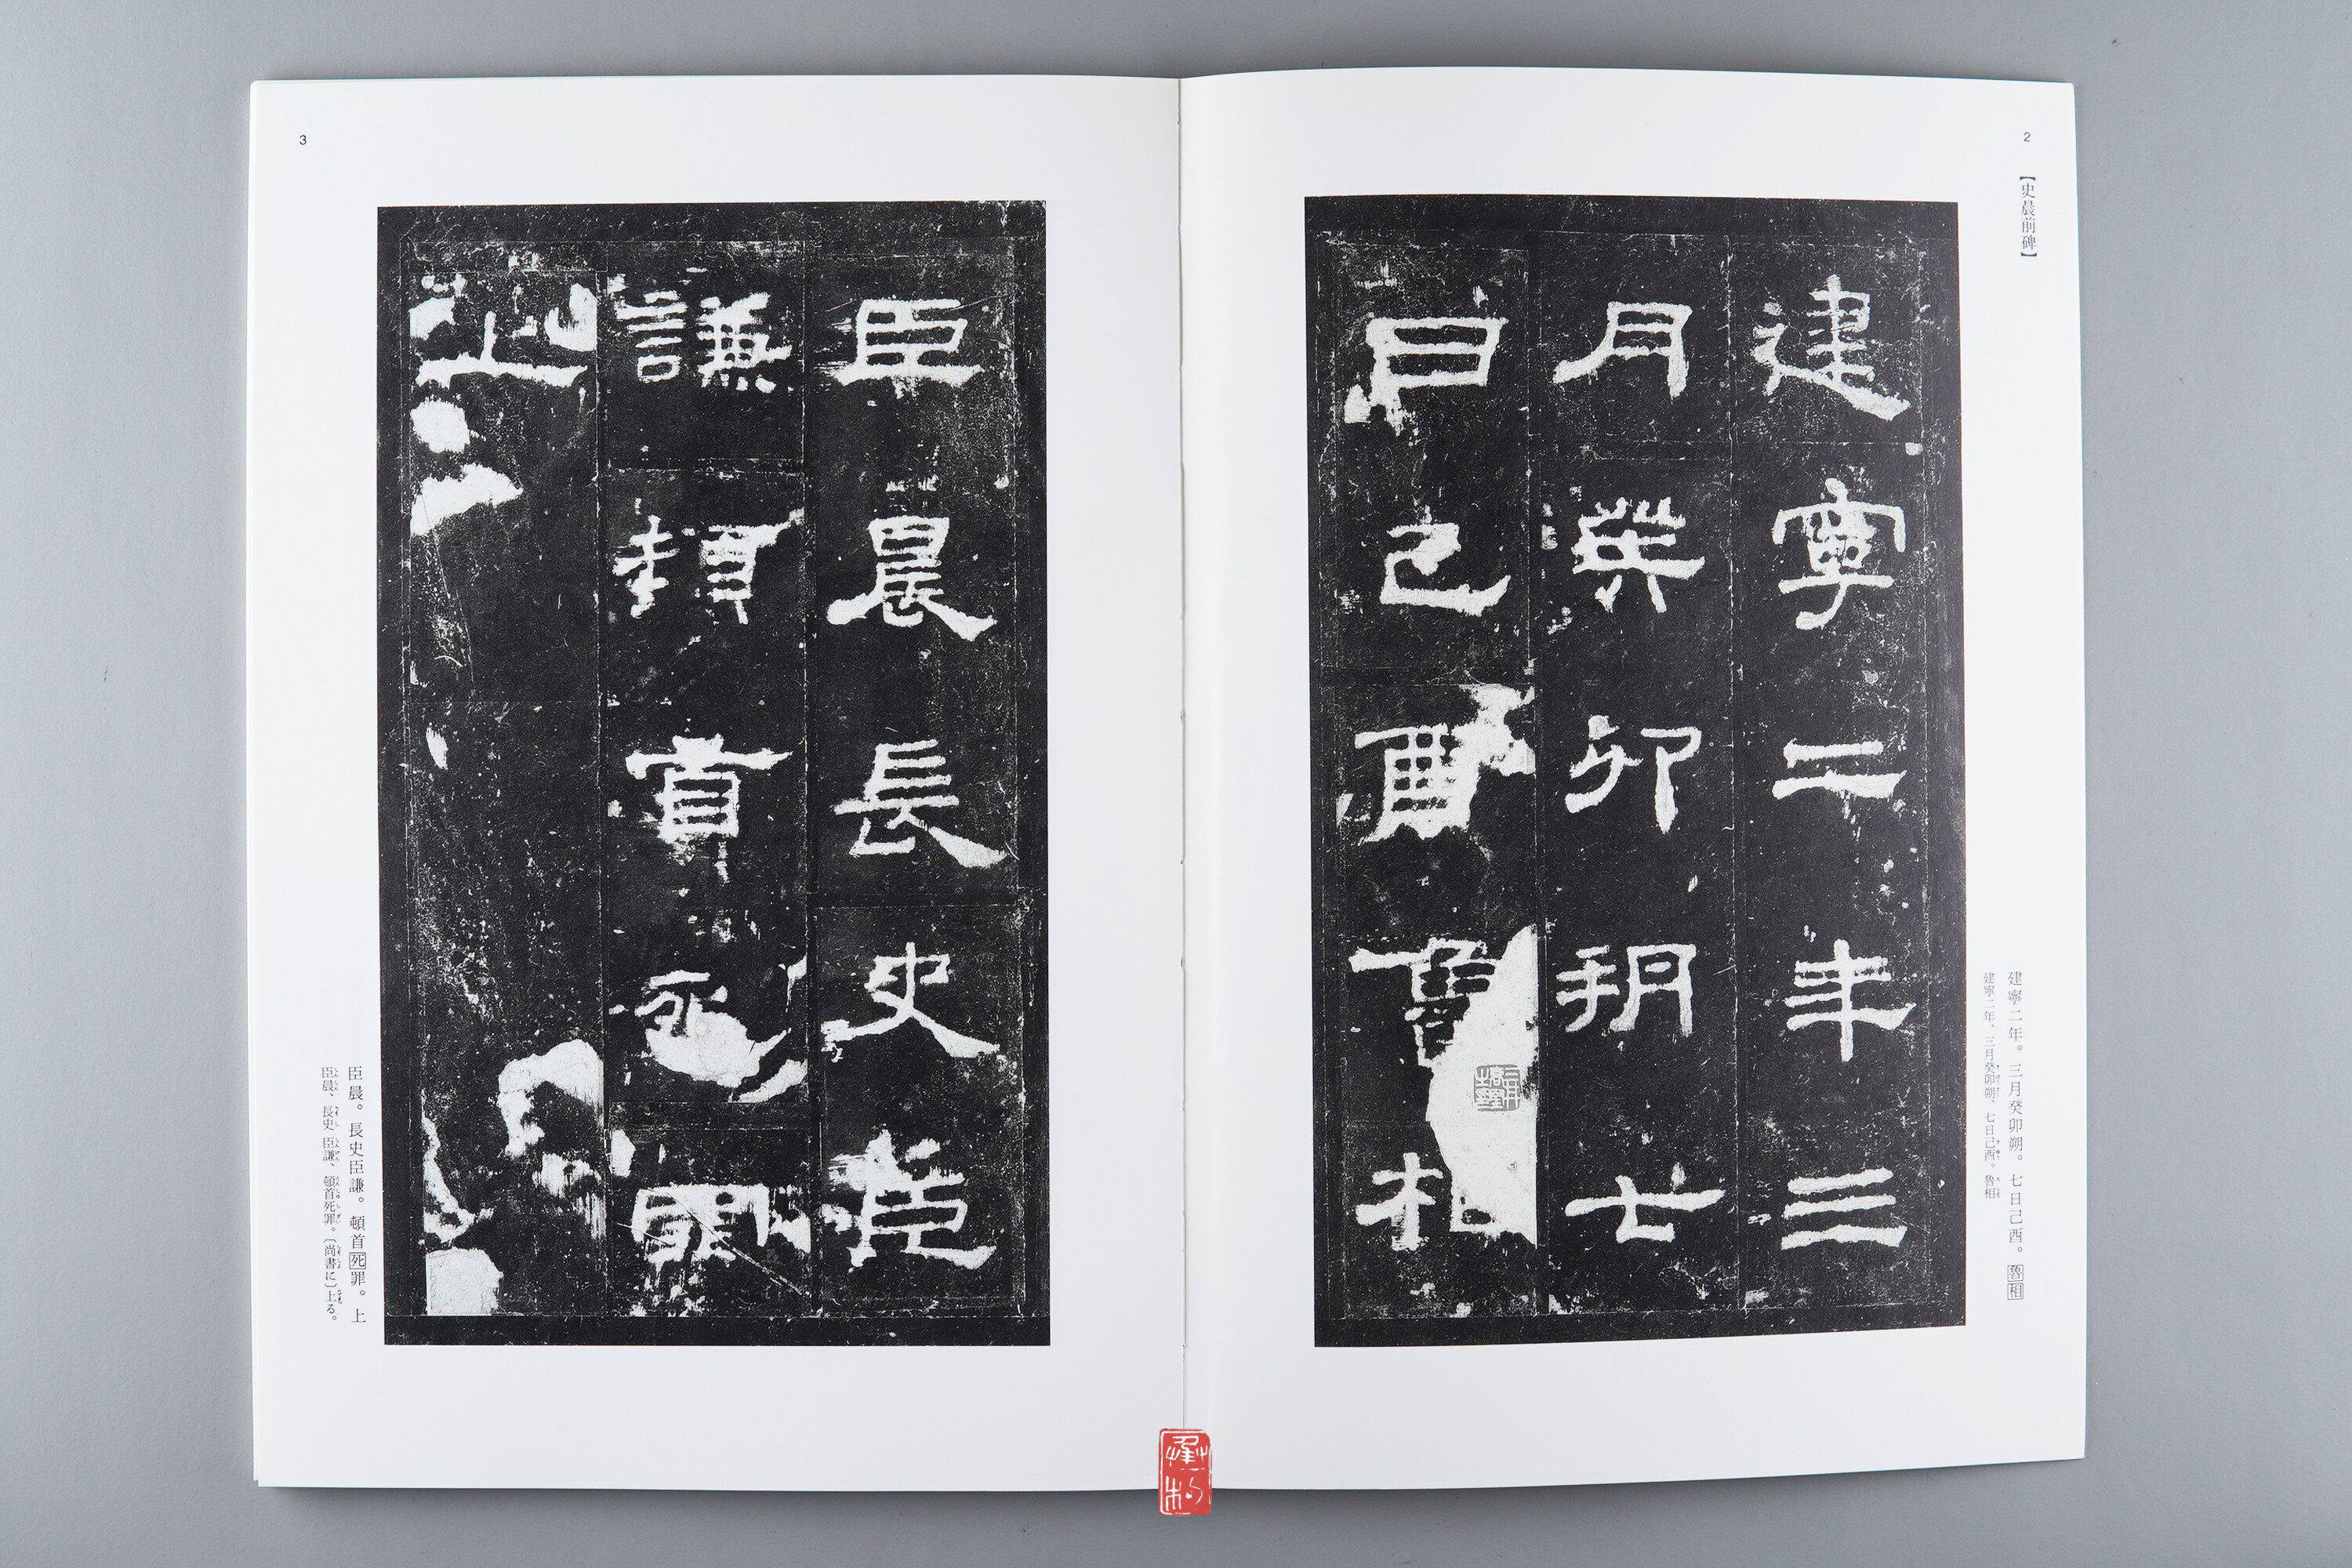 2
【史晨前碑】
建寧二年三
月癸卯朔七
日己酉魯相
建寧二年。三月癸卯朔。七日己酉。魯相
建寧二年、三月癸卯朔、七日己酉。魯相
3
臣晨長史臣
謙頓首死罪
上
臣晨。長史臣謙。頓首死罪。上
臣晨、長史臣謙、頓首死罪。〔尚書に〕上る。